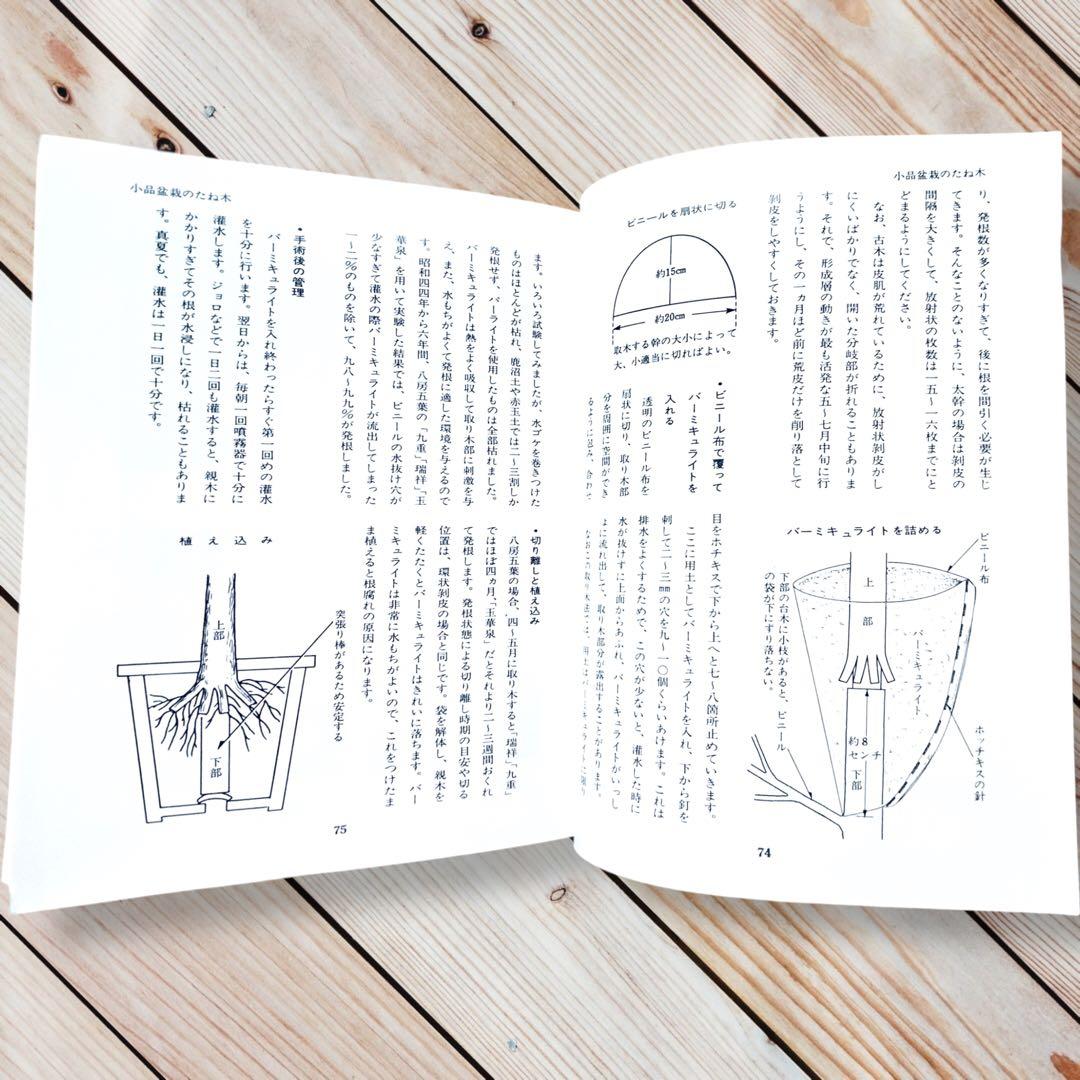 小品盆栽のたね木
り、発根数が多くなりすぎて、後に根を間引く必要が生じ
てきます。そんなことのないように、太幹の場合は剝皮の
間隔を大きくして、放射状の枚数は一五〜一六枚までにと
どまるようにしてください。
なお、古木は皮肌が荒れているために、放射状剝皮がし
にくいばかりでなく、開いた分岐部が折れることもありま
す。それで、形成層の動きが最も活発な五〜七月中旬に行
うようにし、その一ヵ月ほど前に荒皮だけを削り落として
剝皮をしやすくしておきます。
ビニールを扇状に切る
約15cm
約20cm
取木する幹の大小によって
大、小適当に切ればよい。
・ビニール布で覆って
バーミキュライトを
入れる
透明のビニール布を
扇状に切り、取り木部
分を周囲に空間ができ
るように包み、合わせ
目をホチキスで下から上へと七〜八箇所止めていきます。
ここに用土としてバーミキュライトを入れ、下から釘を
刺して二〜三mmの穴を九〜一〇個くらいあけます。これは
排水をよくするためで、この穴が少ないと、灌水した時に
水が抜けずに上面からあふれ、バーミキュライトがいっし
ょに流れ出して、取り木部分が露出することがあります。
なおこの取り木法では、用土はバーミキュライトに限り
バーミキュライトを詰める
ビニール布
上
部
バーミキュライト
約8
センチ
下部
ホッチキスの針
下部の台木に小枝があると、ビニール
の袋が下にずり落ちない。
74
小品盆栽のたね木
ます。いろいろ試験してみましたが、水ゴケを巻きつけた
ものはほとんどが枯れ、鹿沼土や赤玉土では二〜三割しか
発根せず、パーライトを使用したものは全部枯れました。
バーミキュライトは熱をよく吸収して取り木部に刺激を与
え、また、水もちがよくて発根に適した環境を与えるので
す。昭和四四年から六年間、八房五葉の「九重」「瑞祥」「玉
華泉」を用いて実験した結果では、ビニールの水抜け穴が
少なすぎて灌水の際バーミキュライトが流出してしまった
一〜二%のものを除いて、九八〜九九%が発根しました。
・手術後の管理
バーミキュライトを入れ終わったらすぐ第一回めの灌水
を十分に行います。翌日からは、毎朝一回噴霧器で十分に
灌水します。ジョロなどで一日二回も灌水すると、親木に
かかりすぎてその根が水浸しになり、枯れることもありま
す。真夏でも、灌水は一日一回で十分です。
・切り離しと植え込み
八房五葉の場合、四〜五月に取り木すると「瑞祥」「九重」
ではほぼ四ヵ月、「玉華泉」だとそれより二〜三週間おくれ
て発根します。発根状態による切り離し時期の目安や切る
位置は、環状剝皮の場合と同じです。袋を解体し、親木を
軽くたたくとバーミキュライトはきれいに落ちます。バー
ミキュライトは非常に水もちがよいので、これをつけたま
ま植えると根腐れの原因になります。
植え込み
上部
下部
突張り棒があるため安定する
75